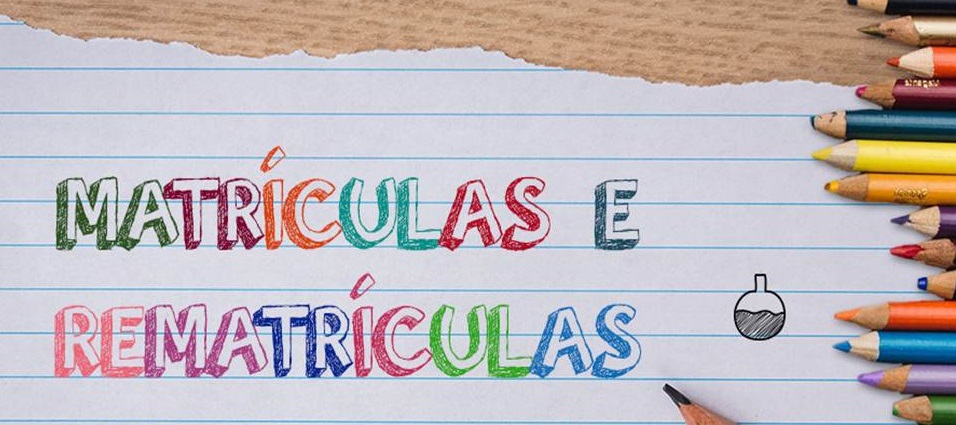 MATRÍCULAS E
REMATRÍCULAS